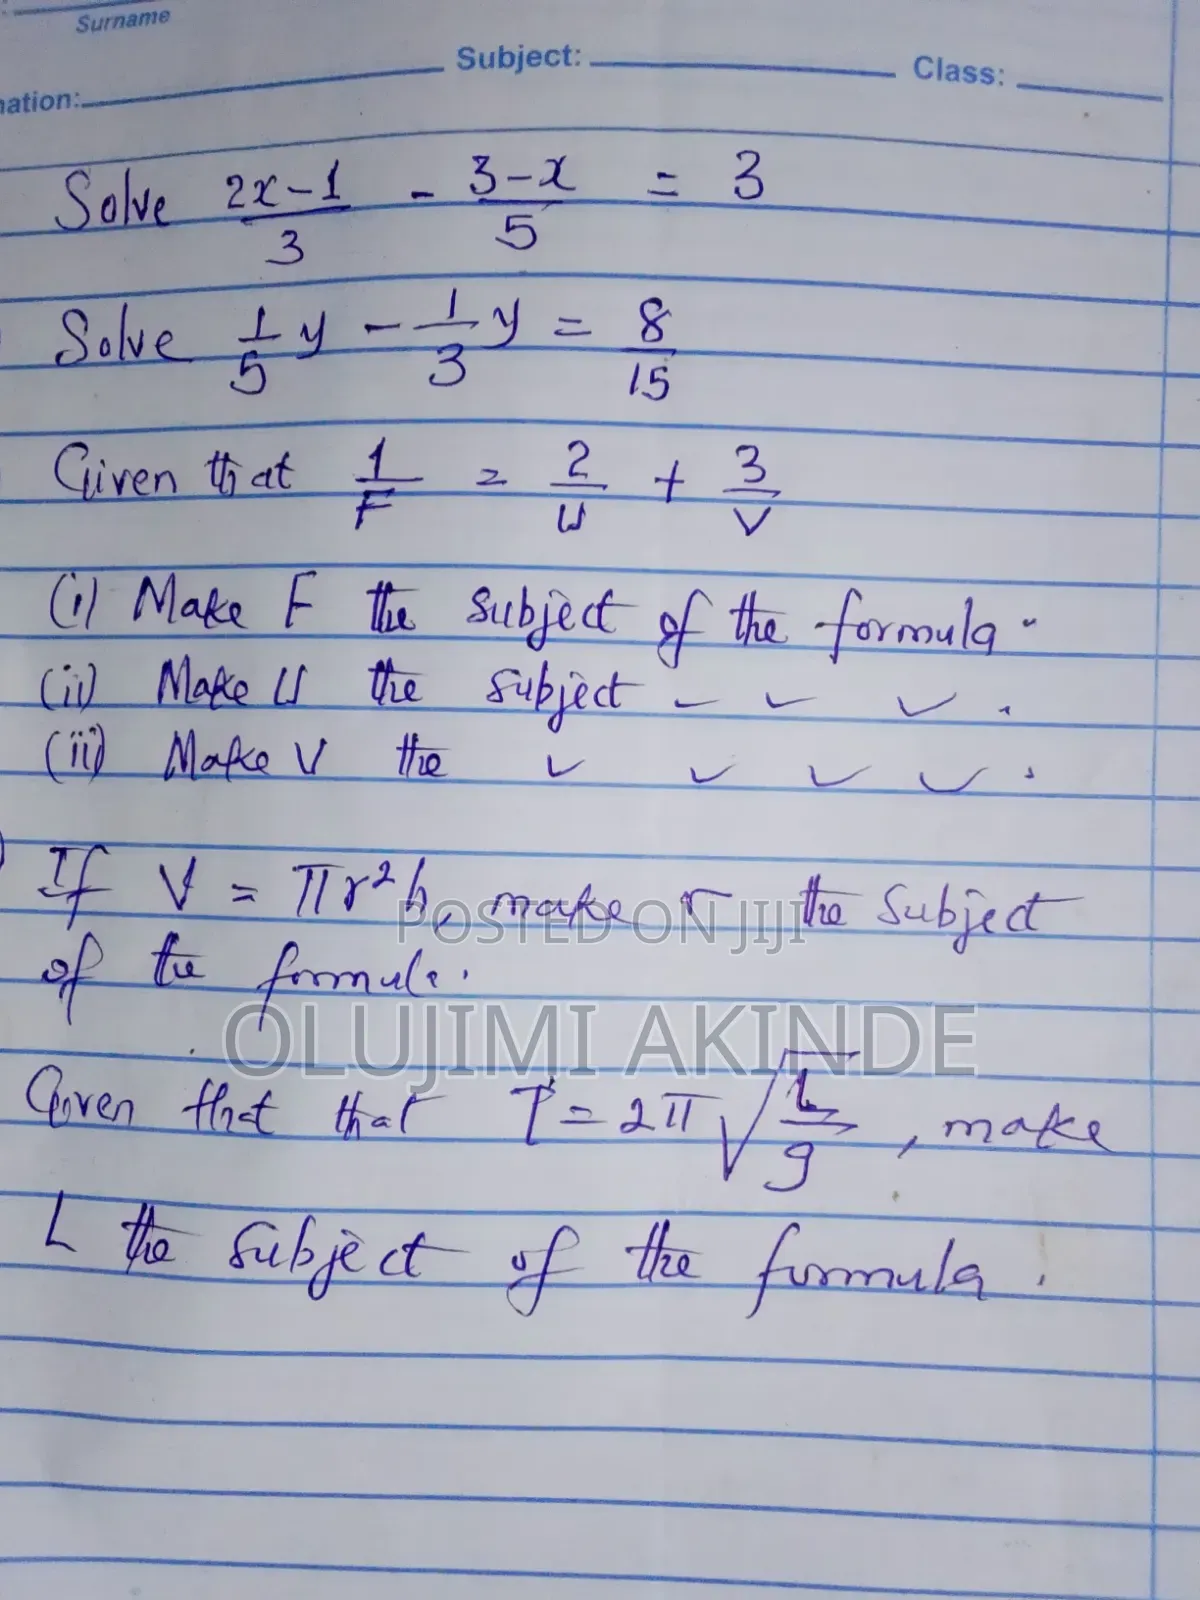 Surname
nation: Subject: Class:
Solve 2x-1/3 - 3-x/5 = 3
Solve 1/5 y - 1/3 y = 8/15
Given that 1/F = 2/U + 3/V
(i) Make F the subject of the formula.
(ii) Make U the subject - ✓ ✓ .
(iii) Make V the ✓ ✓ ✓ ✓ .
If V = πr²h, make r the subject
POSTED ON JIJI
of the formula.
OLUJIMI AKINDE
Given that that T = 2π√L/g, make
L the subject of the formula.